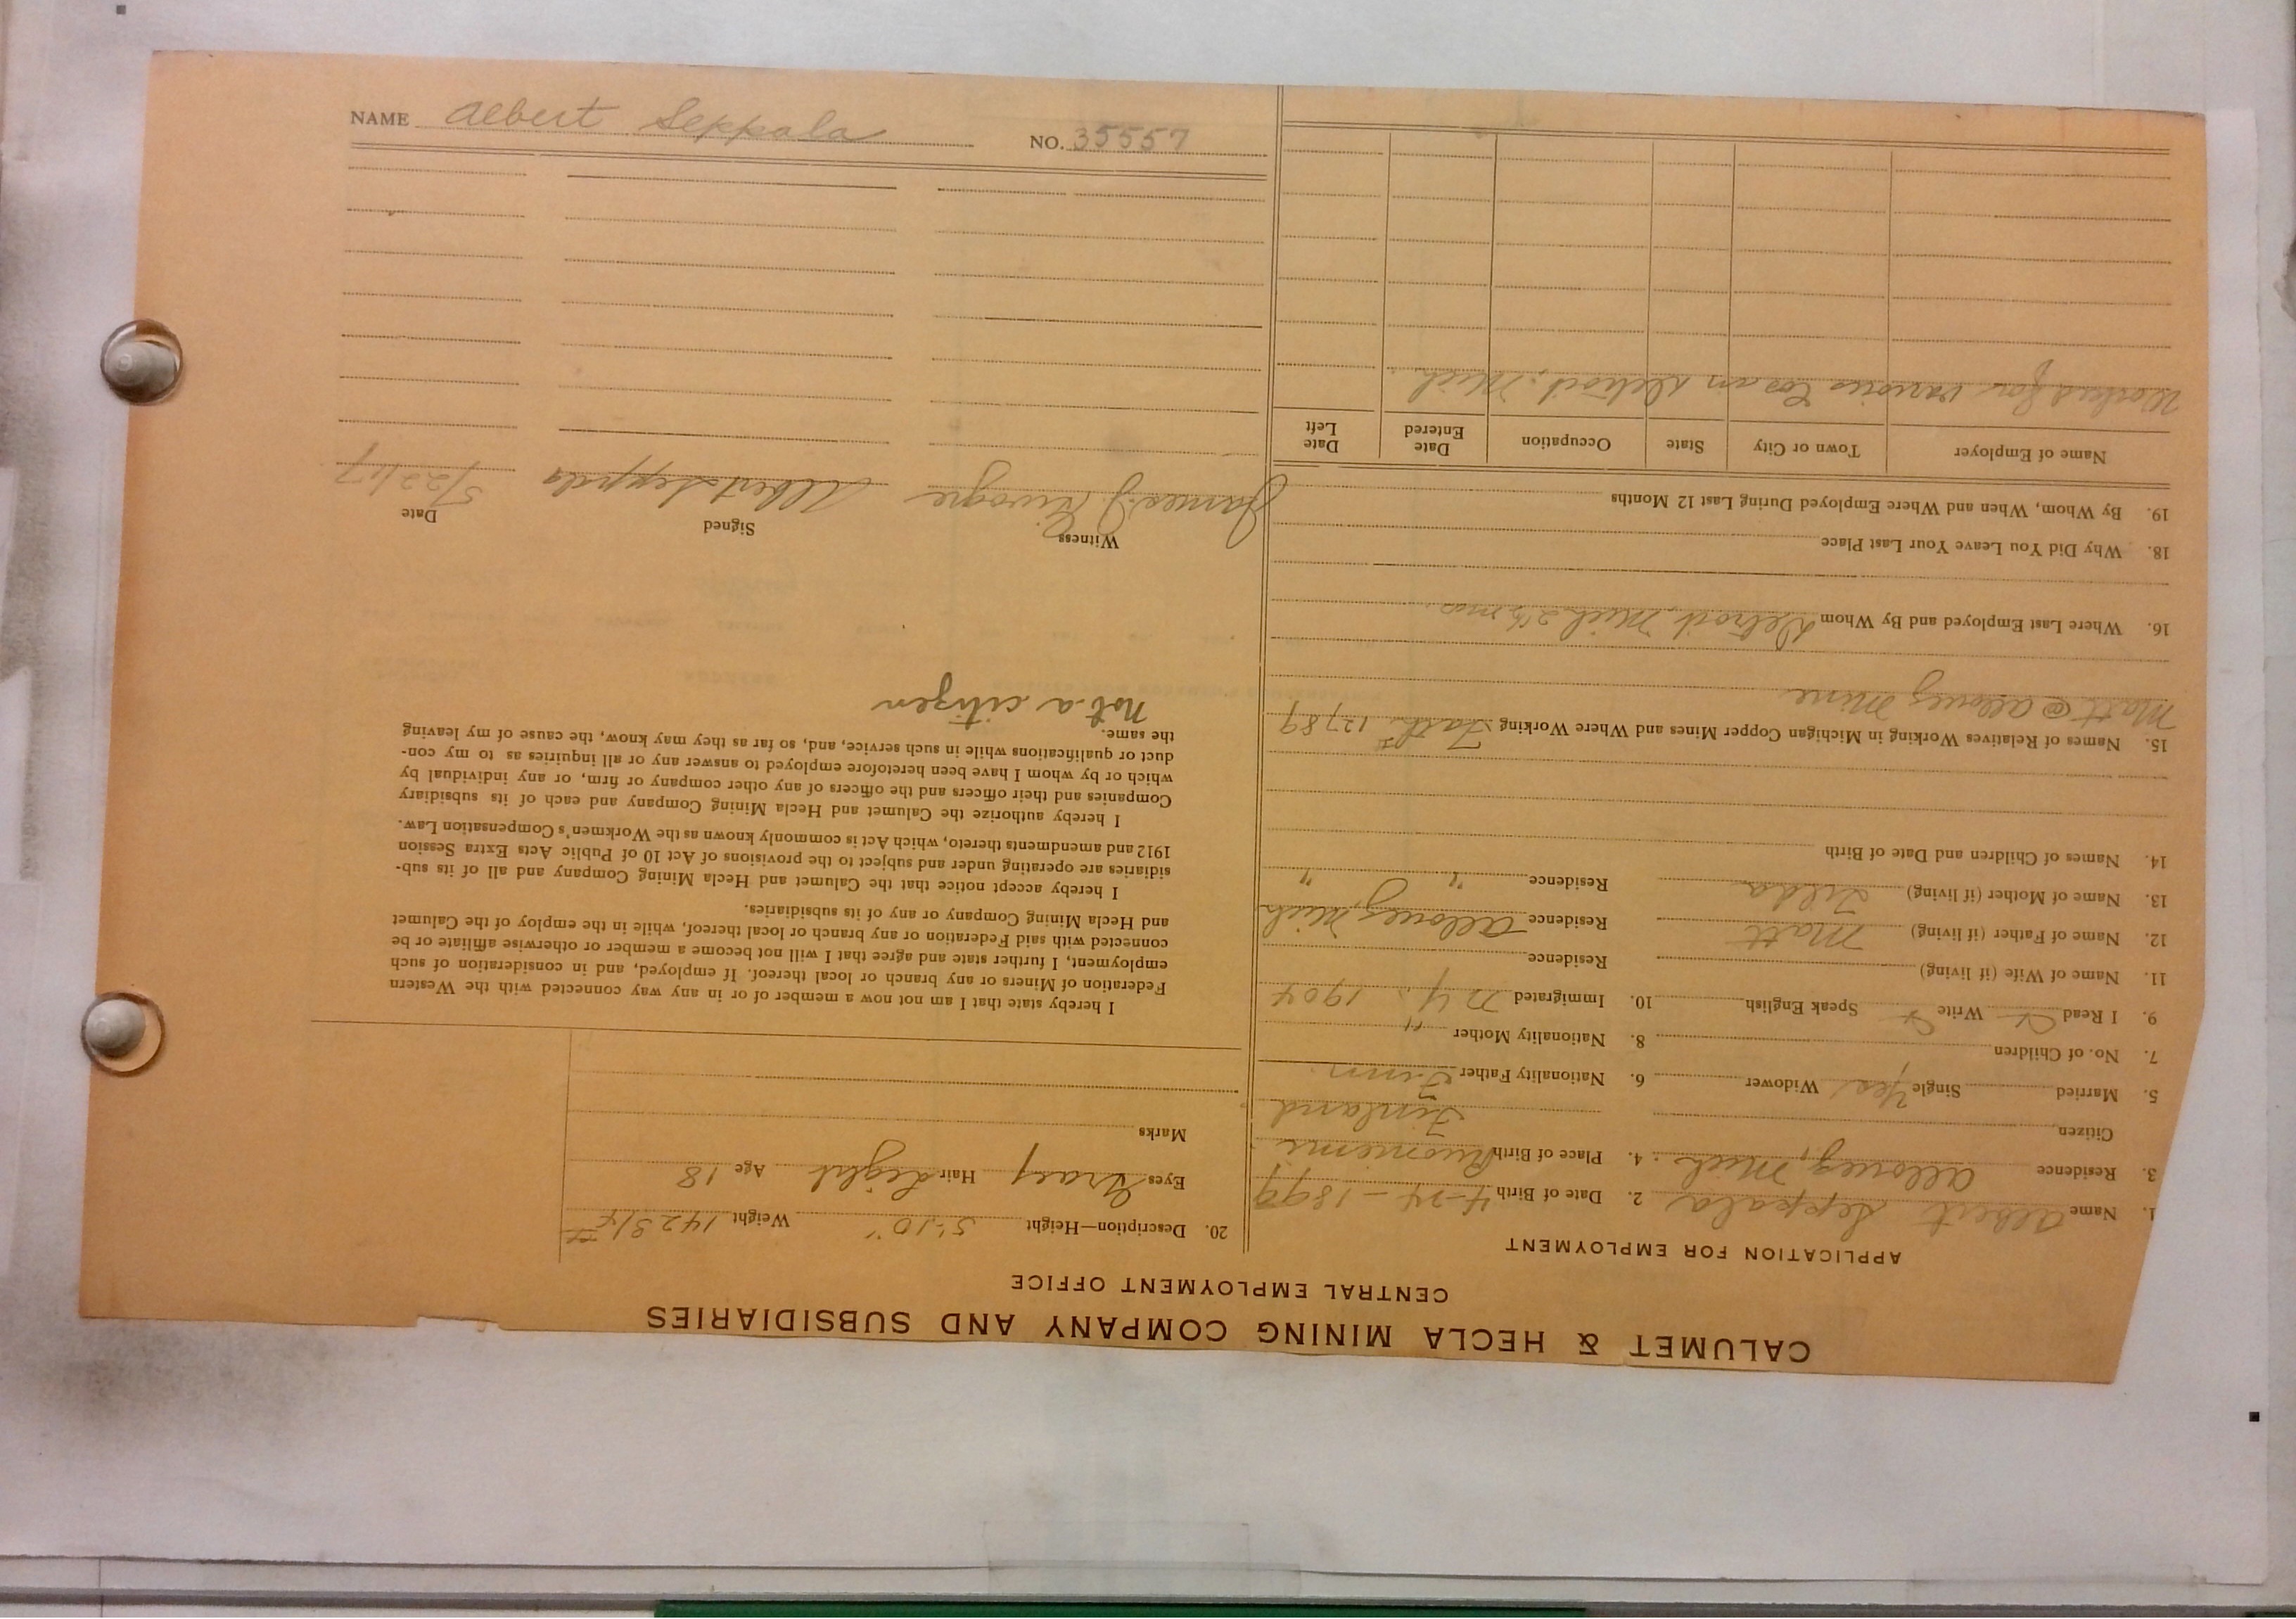 CALUMET & HECLA MINING COMPANY AND SUBSIDIARIES
CENTRAL EMPLOYMENT OFFICE
APPLICATION FOR EMPLOYMENT
1. Name Albert Seppala 2. Date of Birth 4-24-1899
3. Residence Allouez, Mich. 4. Place of Birth
Citizen Finland
5. Married Single Yes Widower 6. Nationality Father Finn.
7. No. of Children 8. Nationality Mother "
9. I Read Write Speak English 10. Immigrated N.Y. 1904
11. Name of Wife (if living) Residence
12. Name of Father (if living) Matt Residence Allouez, Mich
13. Name of Mother (if living) Residence " "
14. Names of Children and Date of Birth
15. Names of Relatives Working in Michigan Copper Mines and Where Working Fath. # 12789
Matt @ Allouez Mine
16. Where Last Employed and By Whom Detroit, Mich
18. Why Did You Leave Your Last Place
19. By Whom, When and Where Employed During Last 12 Months
Name of Employer Town or City State Occupation Date Entered Date Left
Worked for various Cos in Detroit, Mich.
20. Description—Height 5'-10" Weight 142 3/4 #
Eyes Gray Hair Light Age 18
Marks
I hereby state that I am not now a member of or in any way connected with the Western
Federation of Miners or any branch or local thereof. If employed, and in consideration of such
employment, I further state and agree that I will not become a member or otherwise affiliate or be
connected with said Federation or any branch or local thereof, while in the employ of the Calumet
and Hecla Mining Company or any of its subsidiaries.
I hereby accept notice that the Calumet and Hecla Mining Company and all of its sub-
sidiaries are operating under and subject to the provisions of Act 10 of Public Acts Extra Session
1912 and amendments thereto, which Act is commonly known as the Workmen's Compensation Law.
I hereby authorize the Calumet and Hecla Mining Company and each of its subsidiary
Companies and their officers and the officers of any other company or firm, or any individual by
which or by whom I have been heretofore employed to answer any or all inquiries as to my con-
duct or qualifications while in such service, and, so far as they may know, the cause of my leaving
the same.
Not a citizen
Witness Signed Date
James J. Albert Seppala 5/22/17
NAME Albert Seppala NO. 35557